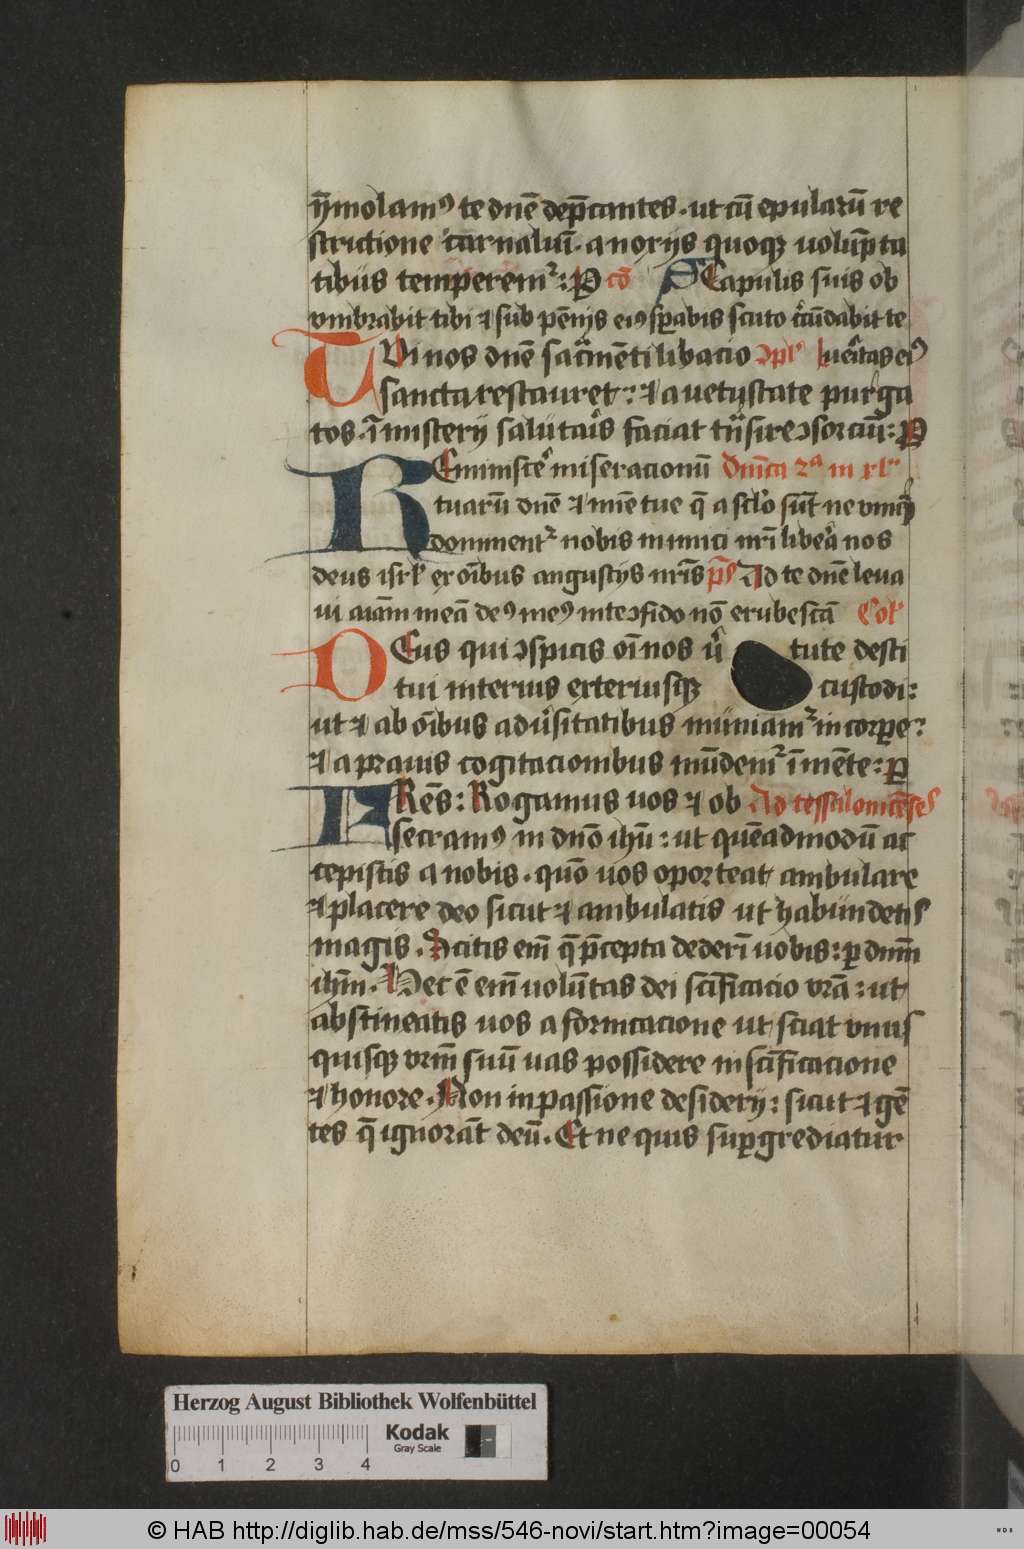 ȳmolamꝰ te dnē dep̄cantes · ut cū epularū re
strictione carnaliū · a noxijs quoqꝫ uolūpta
tibus temperemᷣ : P cō Scapulis suis ob
vmbrabit tibi ⁊ sub pēnis eiꝰ sꝑabis scuto c̄cūdabit te
TUi nos dnē sac̄mēti libacio ꝯplꝰ ueītas eiꝰ
sancta restauret : ⁊ a uetustate purga
tos · ī misterij salutaīs faciat trāsire ꝯsorciū : P
REminiscēʼ miseracionū Dnīca 2ᵃ in xlᵉ
tuarū dnē ⁊ mīe tue q̄ a sclo sūt ne vmqᷓ
dominentᷣ nobis inimici nrī libeā nos
deus isrl ex oībus angustijs nrīs p̄s Ad te dnē leua
ui aīam meā deꝰ meꝰ in te ꝯfido nō erubescā Col
DEus qui ꝯspicis oī nos ūtute desti
tui interius exteriusqꝫ custodi :
ut ⁊ ab oībus adūsitatibus muniamᷣ in corꝑe :
⁊ a prauis cogitacionibus mūdemᷣ ī mēte : ꝑ
FRēs : Rogamus uos ⁊ ob Ad tessalonicēses
secramꝰ in dnō ihū : ut quēadmodū ac
cepistis a nobis · quō uos oporteat ambulare
⁊ placere deo sicut ⁊ ambulatis ut habundetis
magis · Scitis eīm q̄ p̄cepta dederī uobis : ꝑ dnīm
ihm̄ · Hec ē eīm uolūtas dei scīficacio vrā : ut
abstineatis uos a fornicacione ut sciat vnus
quisqꝫ vrm̄ suū uas possidere in scīficacione
⁊ honore · Non in passione desiderij : sicut ⁊ gē
tes q̄ ignorāt deū · Et ne quis suꝑgrediatur
Herzog August Bibliothek Wolfenbüttel
Kodak
Gray Scale
0 1 2 3 4
© HAB http://diglib.hab.de/mss/546-novi/start.htm?image=00054